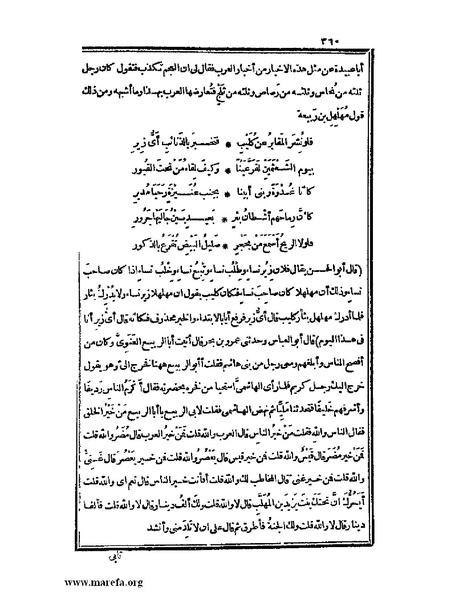 ٣٦٠
أباعبيدة عن مثل هذه الاخبار من أخبار العرب فقال لى ان العجم تكذب فتقول كان رجل
ثلثه من نحاس وثلثه من رصاص وثلثه من ثلج فتعارضها العرب بهذا وما أشبهه ومن ذلك
قول مهلهل بن ربيعة
فلو نشر المقابر عن كليب * فتخبر بالذنائب أى زير
بيوم الشعثمين لقر عينا * وكيف لقاء من تحت القبور
كأنا غدوة وبنى أبينا * بجنب عنيزة رحيا مدير
كأن رماحهم أشطان بئر * بعيد بين جاليها جرور
فلولا الريح أسمع من بحجر * صليل البيض تقرع بالذكور
(قال أبو الحسن يقال فلان زير نساء وطلب نساء وتبع نساء وخلب نساء اذا كان صاحب
نساء وذلك أن مهلهلا كان صاحب نساء فكان كليب يقول ان مهلهلا زير نساء ولا يدرك بثار
فلما أدرك مهلهل بثار كليب قال أى زير فرفع أيا بالابتداء والخبر محذوف فكانه قال أى زير أنا
فى هذا اليوم) قال أبو العباس وحدثنى عمرو بن بحر قال أتيت أبا الربيع الغنوى وكان من
أفصح الناس وأبلغهم ومعى رجل من بنى هاشم فقلت أأبو الربيع ههنا فخرج الى وهو يقول
خرج اليك رجل كريم فلما رأى الهاشمى استحيا من فخره بحضرته فقال أكرم الناس رديفا
وأشرفهم حليفا فتحدثنا مليا ثم نهض الهاشمى فقلت لابى الربيع يا أبا الربيع من خير الخلق
فقال الناس والله فقلت من خير الناس قال العرب والله قلت فمن خير العرب قال مضر والله قلت
فمن خير مضر قال قيس والله قلت فمن خير قيس قال يعصر والله قلت فمن خير يعصر قال غنى
والله قلت فمن خير غنى قال المخاطب لك والله قلت أفأنت خير الناس قال نعم اى والله قلت
أيسرك أن تحتك بنت يزيد بن المهلب قال لا والله قلت ولك ألف دينار قال لا والله قلت فألفا
دينار قال لا والله قلت ولك الجنة فأطرق ثم قال على ان لا تلد منى وأنشد
تأبى
www.marefa.org